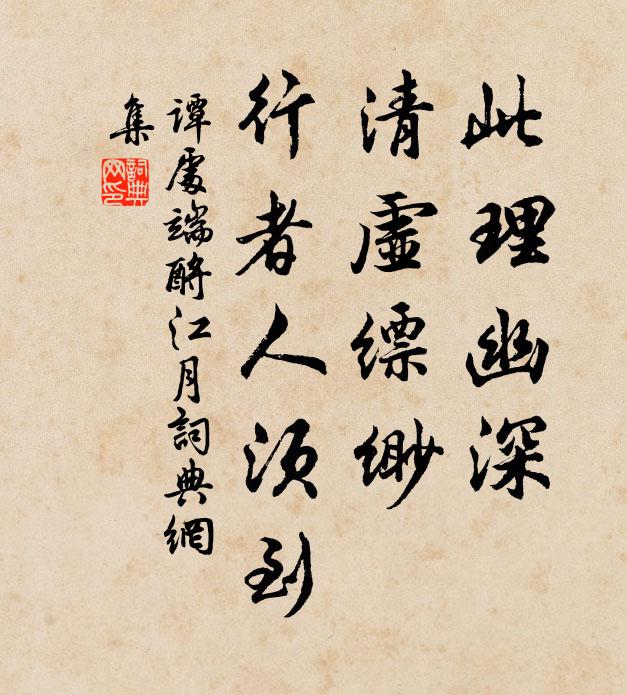 此理幽深
清虛縹緲
行者人須到
譚處端酹江月詞典網
集
詞典網印